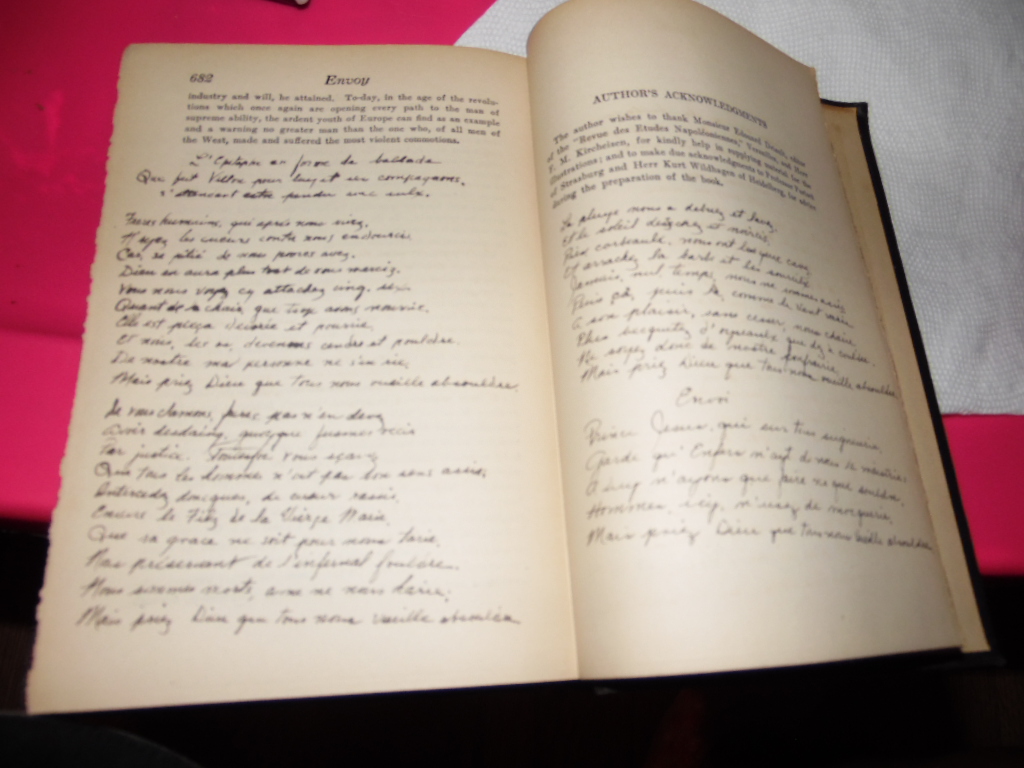 682 Envoy
industry and will, be attained. To-day, in the age of the revolu-
tions which once again are opening every path to the man of
supreme ability, the ardent youth of Europe can find as an example
and a warning no greater man than the one who, of all men of
the West, made and suffered the most violent commotions.
L'Epitaphe en forme de ballade
Que fit Villon pour luy et ses compagnons,
s'attendant estre pendu avec eulx.
Freres humains, qui après nous vivez,
N'ayez les cueurs contre nous endurcis,
Car, se pitié de nous povres avez,
Dieu en aura plus tost de vous merciz.
Vous nous voyez cy attachez cinq, six:
Quant de la chair, que trop avons nourrie,
Elle est pieça devorée et pourrie,
Et nous, les os, devenons cendre et pouldre.
De nostre mal personne ne s'en rie,
Mais priez Dieu que tous nous vueille absouldre.
Se vous clamons, freres, pas n'en devez
Avoir desdaing, quoyque fusmes occis
Par justice. Toutesfois vous sçavez
Que tous les hommes n'ont pas bon sens assis;
Intercedez doncques, de cueur rassis,
Envers le Filz de la Vierge Marie,
Que sa grace ne soit pour nous tarie,
Nous préservant de l'infernal fouldre.
Nous sommes morts, ame ne nous harie;
Mais priez Dieu que tous nous vueille absouldre.
AUTHOR'S ACKNOWLEDGMENTS
The author wishes to thank Monsieur Edouard Driault, editor
of the "Revue des Etudes Napoléoniennes," Versailles, and Herr
F. M. Kircheisen, for kindly help in supplying material for the
illustrations; and to make due acknowledgments to Professor
of Strasburg and Herr Kurt Wildhagen of Heidelberg, for advice
during the preparation of the book.
La pluye nous a debuez et lavez,
Et le soleil dessechez et noircis;
Pies, corbeaulx, nous ont les yeux cavez,
Et arrachez la barbe et les sourcils.
Jamais, nul temps, nous ne sommes assis;
Puis çà, puis là, comme le vent varie,
A son plaisir, sans cesser, nous charie,
Plus becquetez d'oyseaulx que dez à couldre.
Ne soyez donc de nostre confrairie,
Mais priez Dieu que tous nous vueille absouldre.
Envoi
Prince Jesus, qui sur tous seigneurie,
Garde qu'Enfer n'ait de nous la maistrie:
A luy n'ayons que faire ne que souldre,
Hommes, icy, n'usez de mocquerie,
Mais priez Dieu que tous nous vueille absouldre.